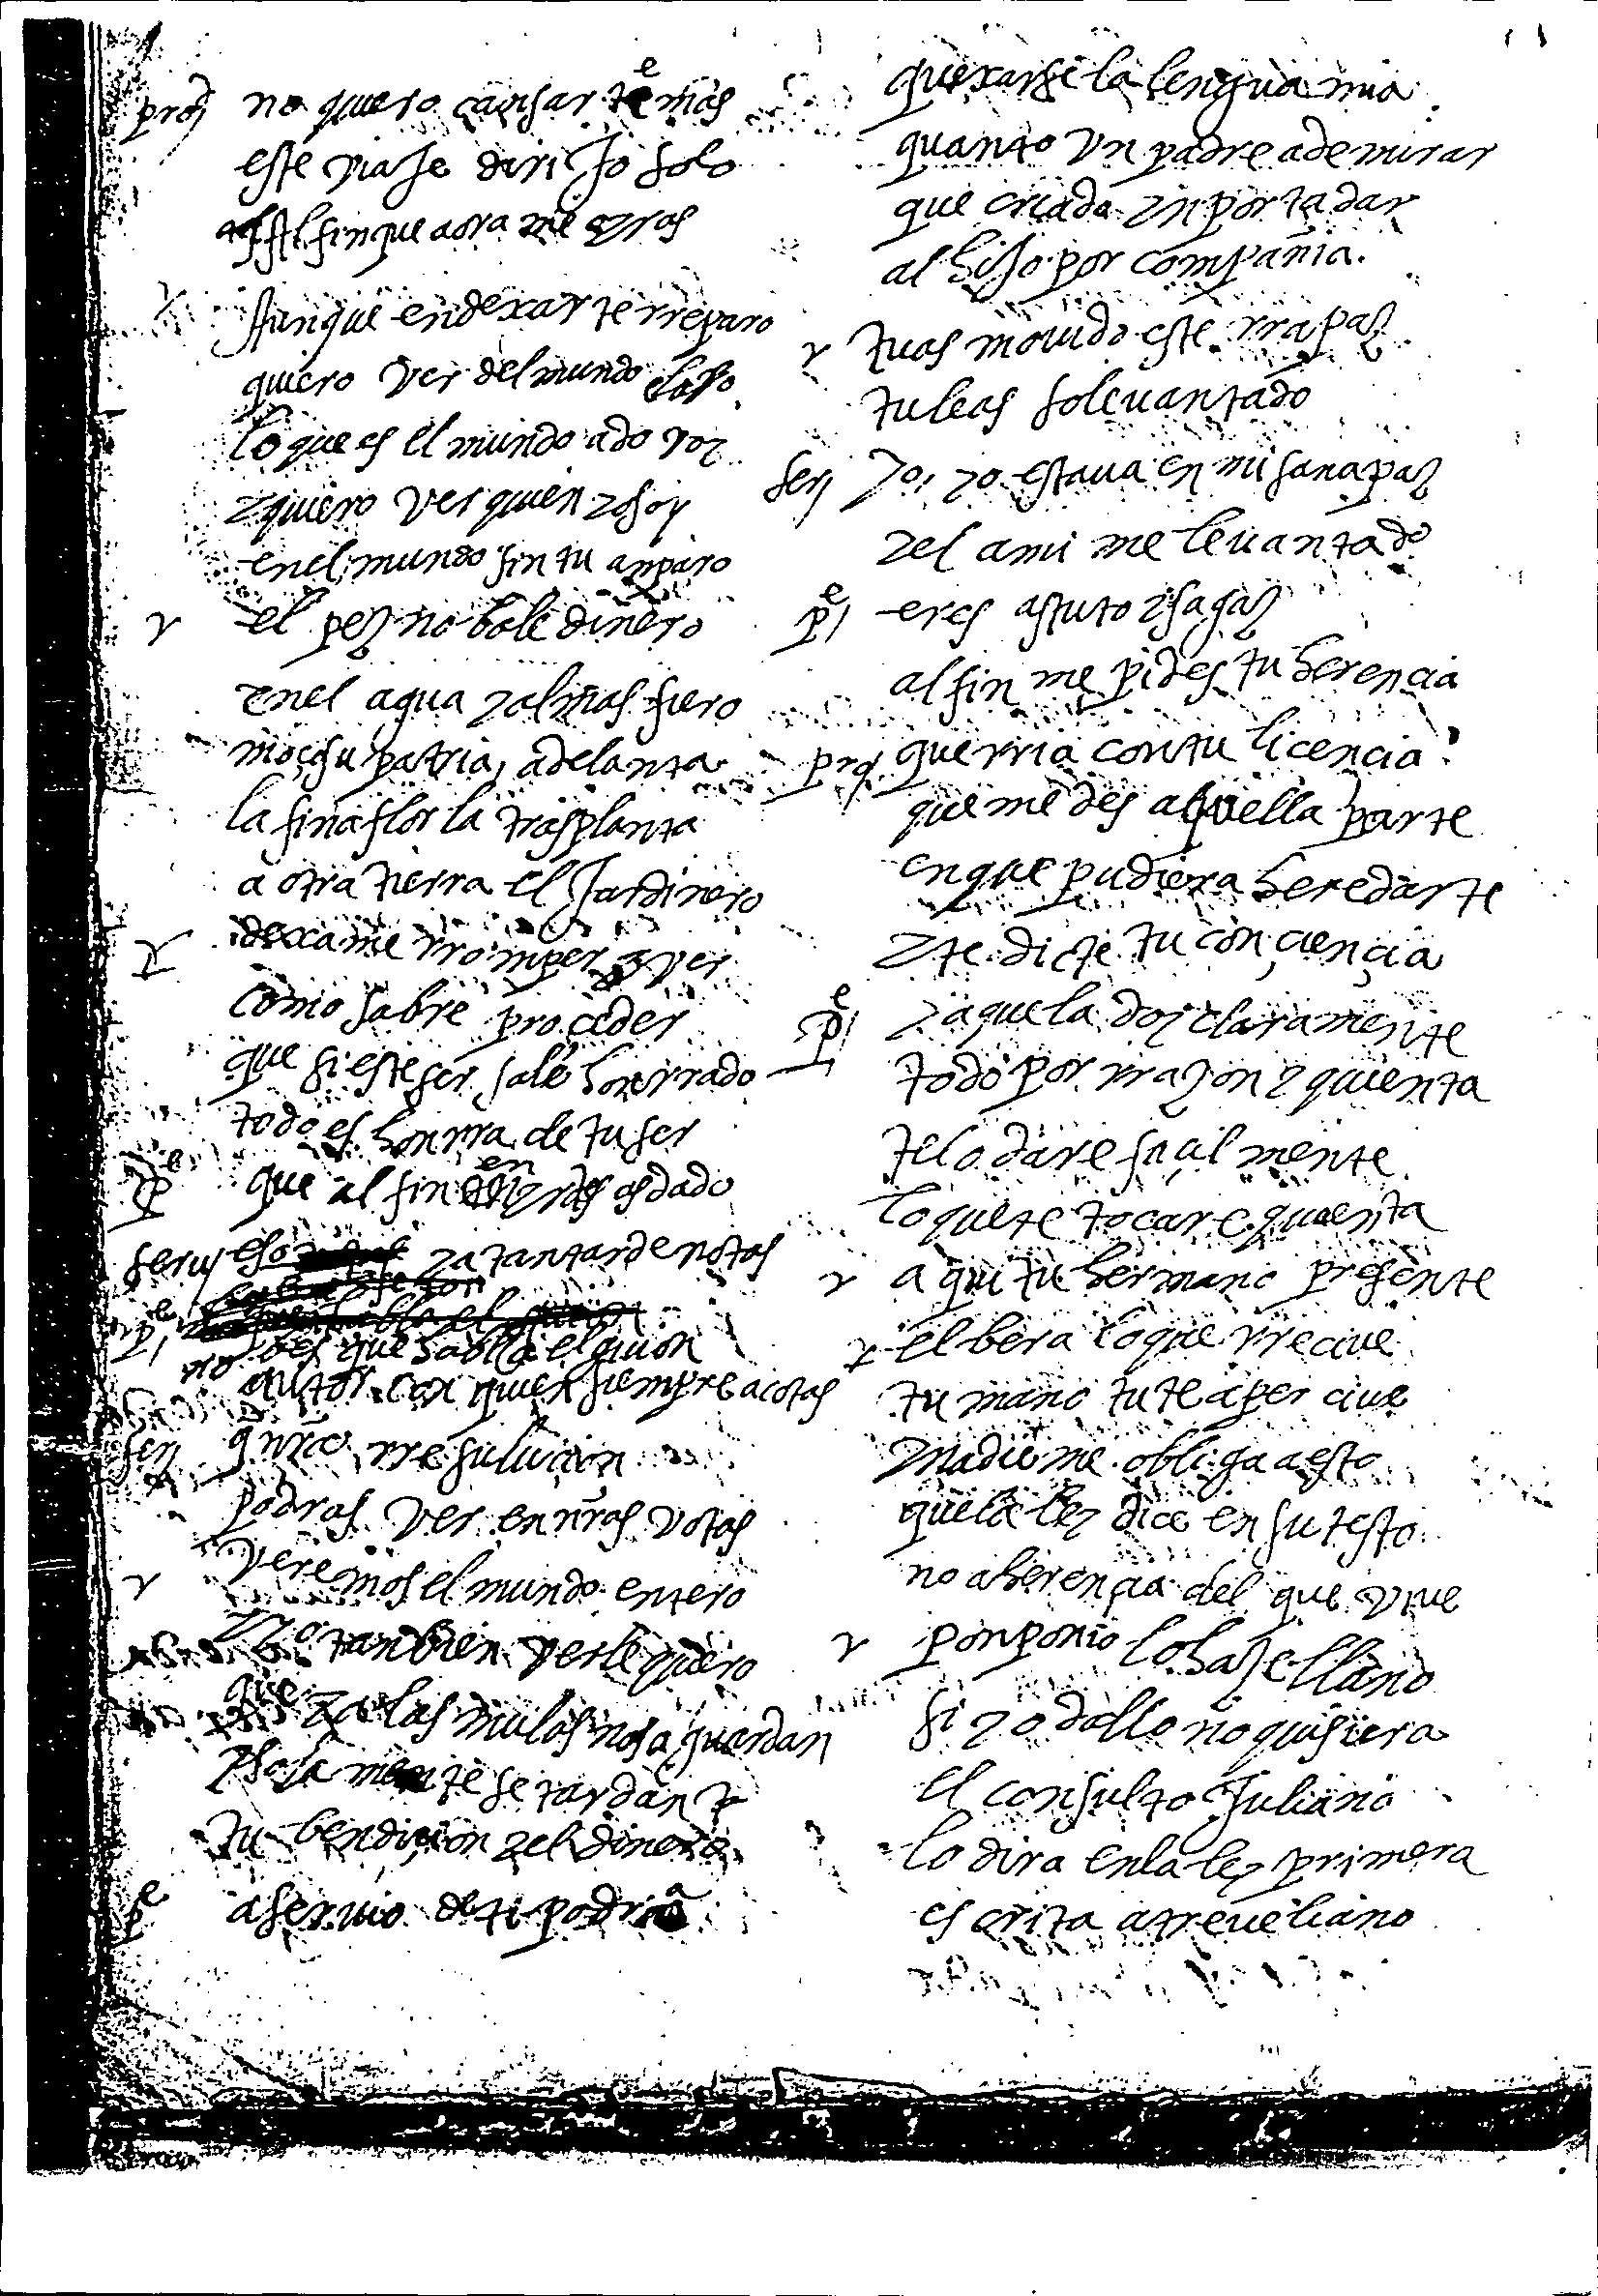 prod no quiero cansarte mas
este viaje dirijo solo
a fin que aora me oyras
Aunque en dexarte rreparo
quiero ver del mundo claro
lo que es el mundo ado voy
y quiero ver quien yo soy
en el mundo sin tu anparo
el pez no bale dinero
en el agua y al mas fiero
moço su patria adelanta
la fina flor la trasplanta
a otra tierra el Jardinero
dexame rromper y ver
como sabre proçeder
que si este ser sale honrrado
todo es honrra de tu ser
pe que al fin en yros os dado
seru eso ya tan tarde notas
pe no bes que habla el guion
autor con quien siempre acotas
seru q nra rresulucion
podras ver en nras votas
veremos el mundo entero
y yo tanbien verle quiero
que ya las mulas nos aguardan
y solamente se tardan
tu bendiçion y el dinero
pe a seruio de ti podria
quexarse la lengua mia
quanto vn padre a de mirar
que criado ynporta dar
al hijo por compañia.
tu as mouido este rrapaz
tu le as soleuantado
seru yo, yo estaua en mi sana paz
y el a mi me leuantado
pe eres astuto y sagaz
al fin me pides tu herencia
prod querria con tu licencia
que me des aquella parte
en que pudiera heredarte
y te dicte tu conçiençia
pe y aque la doy claramente
todo por rrazon y quienta
te lo dare facilmente
lo que te tocare quenta
aqui tu hermano presente
el bera lo que rreciue
tu mano tu te aperciue
y nadie me obliga a esto
que la ley dice en su testo
no a herençia del que viue
ponponio lo haze llano
si yo dallo no quisiera
el consulto Juliano
lo dira en la ley primera
escrita a treueliano